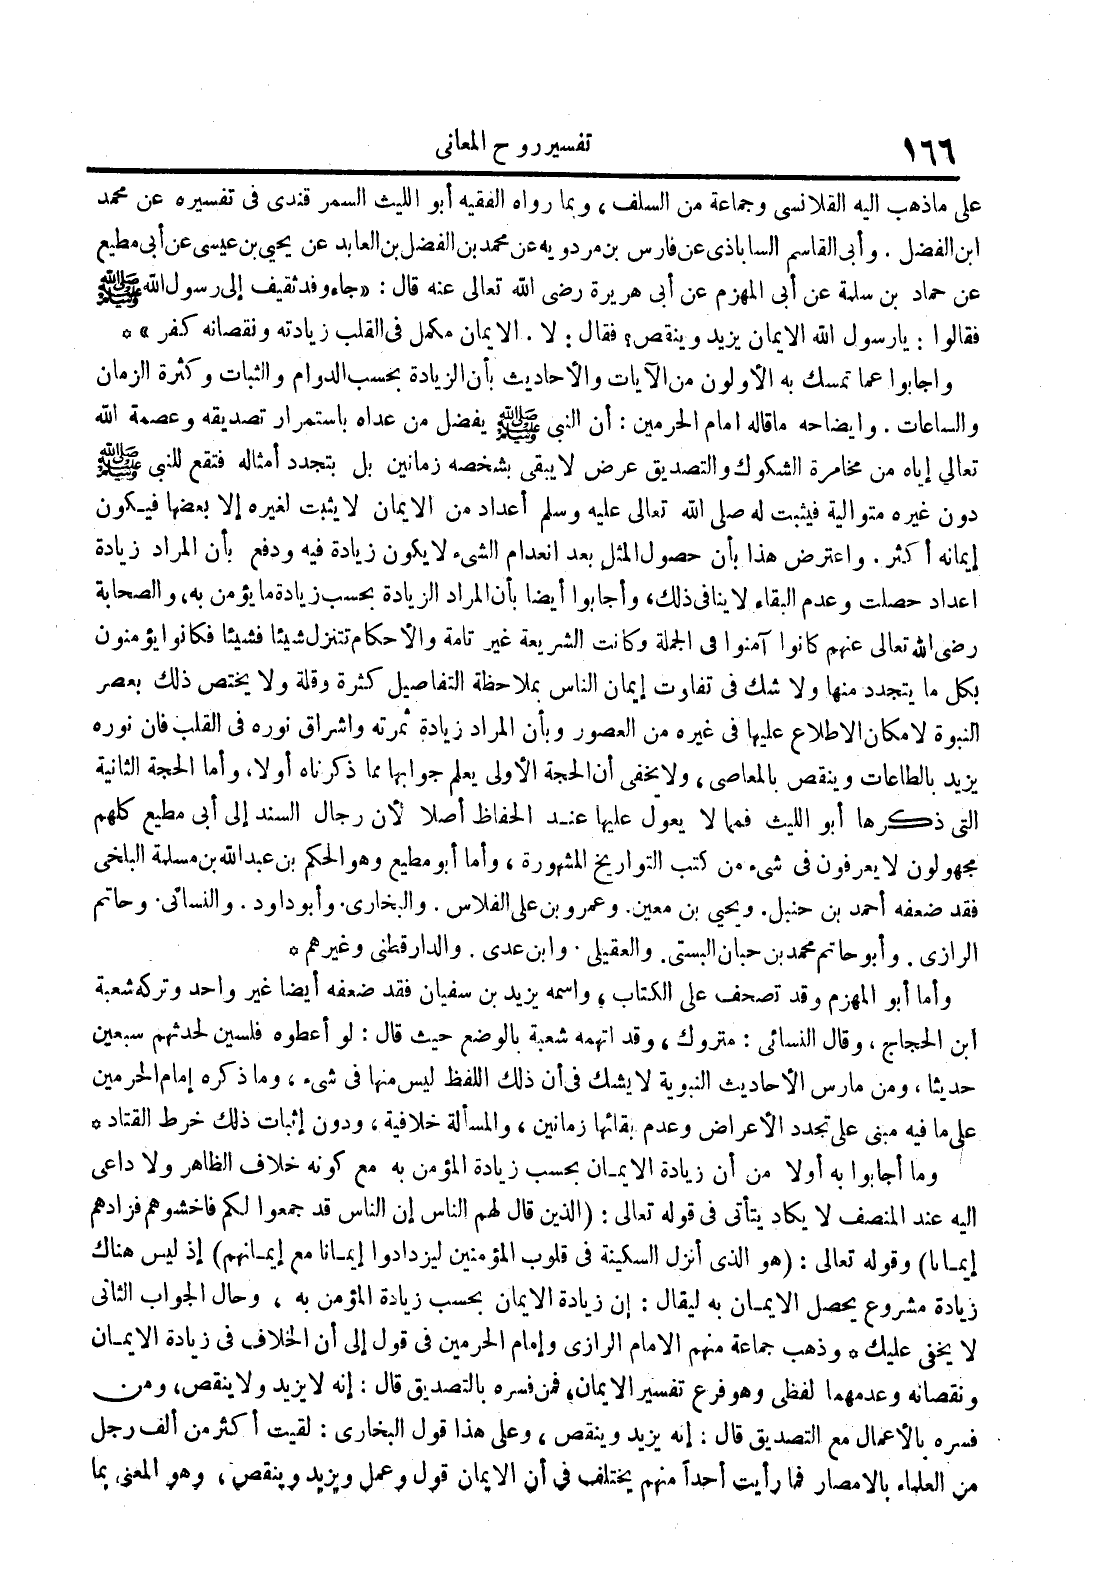 ١٦٦
تفسير روح المعانى
على ماذهب اليه القلانسى وجماعة من السلف ، وبما رواه الفقيه أبو الليث السمر قندى فى تفسيره عن محمد
ابن الفضل . وأبى القاسم الساباذى عن فارس بن مردويه عن محمد بن الفضل بن العابد عن يحيى بن عيسى عن أبى مطيع
عن حماد بن سلمة عن أبى المهزم عن أبى هريرة رضى الله تعالى عنه قال : «جاء وفد ثقيف إلى رسول الله ﷺ
فقالوا : يارسول الله الايمان يزيد وينقص؟ فقال : لا . الايمان مكمل فى القلب زيادته ونقصانه كفر » *
واجابوا عما تمسك به الأولون من الآيات والأحاديث بأن الزيادة بحسب الدوام والثبات وكثرة الزمان
والساعات . وايضاحه ماقاله امام الحرمين : أن النبى ﷺ يفضل من عداه باستمرار تصديقه وعصمة الله
تعالي إياه من مخامرة الشكوك والتصديق عرض لايبقى بشخصه زمانين بل بتجدد أمثاله فتقع للنبى ﷺ
دون غيره متوالية فيثبت له صلى الله تعالى عليه وسلم أعداد من الايمان لايثبت لغيره إلا بعضها فيكون
إيمانه أكثر . واعترض هذا بأن حصول المثل بعد انعدام الشىء لايكون زيادة فيه ودفع بأن المراد زيادة
اعداد حصلت وعدم البقاء لاينافى ذلك، وأجابوا أيضا بأن المراد الزيادة بحسب زيادة ما يؤمن به، والصحابة
رضى الله تعالى عنهم كانوا آمنوا فى الجملة وكانت الشريعة غير تامة والأحكام تتنزل شيئا فشيئا فكانوا يؤمنون
بكل ما يتجدد منها ولا شك فى تفاوت إيمان الناس بملاحظة التفاصيل كثرة وقلة ولا يختص ذلك بعصر
النبوة لامكان الاطلاع عليها فى غيره من العصور وبأن المراد زيادة ثمرته واشراق نوره فى القلب فان نوره
يزيد بالطاعات وينقص بالمعاصى ، ولايخفى أن الحجة الأولى يعلم جوابها مما ذكرناه أولا، وأما الحجة الثانية
التى ذكرها أبو الليث فمما لا يعول عليها عند الحفاظ أصلا لأن رجال السند إلى أبى مطيع كلهم
مجهولون لا يعرفون فى شىء من كتب التواريخ المشهورة ، وأما أبو مطيع وهو الحكم بن عبدالله بن مسلمة البلخى
فقد ضعفه أحمد بن حنبل. ويحيي بن معين. وعمرو بن على الفلاس . والبخارى. وأبوداود . والنسائى. وحاتم
الرازى . وأبو حاتم محمد بن حبان البستى. والعقيلى . وابن عدى . والدارقطنى وغيرهم *
وأما أبو المهزم وقد تصحف على الكتاب ، واسمه يزيد بن سفيان فقد ضعفه أيضا غير واحد وتركه شعبة
ابن الحجاج ، وقال النسائى : متروك ، وقد اتهمه شعبة بالوضع حيث قال : لو أعطوه فلسين لحدثهم سبعين
حديثا ، ومن مارس الأحاديث النبوية لايشك فى أن ذلك اللفظ ليس منها فى شىء ، وما ذكره إمام الحرمين
على ما فيه مبنى على تجدد الأعراض وعدم بقائها زمانين ، والمسألة خلافية ، ودون إثبات ذلك خرط القتاد *
وما أجابوا به أولا من أن زيادة الايمان بحسب زيادة المؤمن به مع كونه خلاف الظاهر ولا داعى
اليه عند المنصف لا يكاد يتأتى فى قوله تعالى : (الذين قال لهم الناس إن الناس قد جمعوا لكم فاخشوهم فزادهم
إيمانا) وقوله تعالى : (هو الذى أنزل السكينة فى قلوب المؤمنين ليزدادوا إيمانا مع إيمانهم) إذ ليس هناك
زيادة مشروع يحصل الايمان به ليقال : إن زيادة الايمان بحسب زيادة المؤمن به ، وحال الجواب الثانى
لا يخفى عليك * وذهب جماعة منهم الامام الرازى وإمام الحرمين فى قول إلى أن الخلاف فى زيادة الايمان
ونقصانه وعدمهما لفظى وهو فرع تفسير الايمان، فمن فسره بالتصديق قال : إنه لايزيد ولاينقص، ومن
فسره بالأعمال مع التصديق قال : إنه يزيد وينقص ، وعلى هذا قول البخارى : لقيت أكثر من ألف رجل
من العلماء بالامصار فما رأيت أحداً منهم يختلف فى أن الايمان قول وعمل ويزيد وينقص، وهو المعنى بما